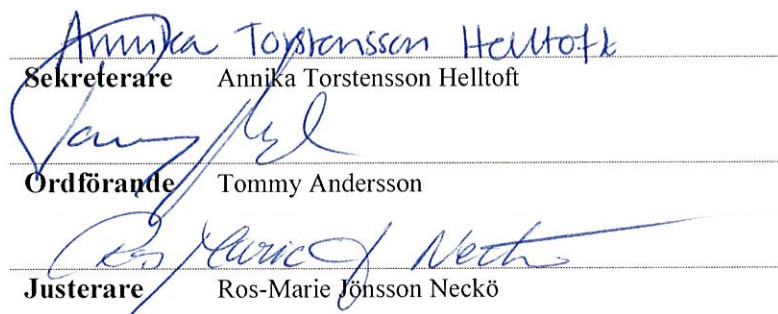 Annika Torstensson Helltoft
Sekreterare Annika Torstensson Helltoft
Ordförande Tommy Andersson
Ros-Marie J Neckö
Justerare Ros-Marie Jönsson Neckö